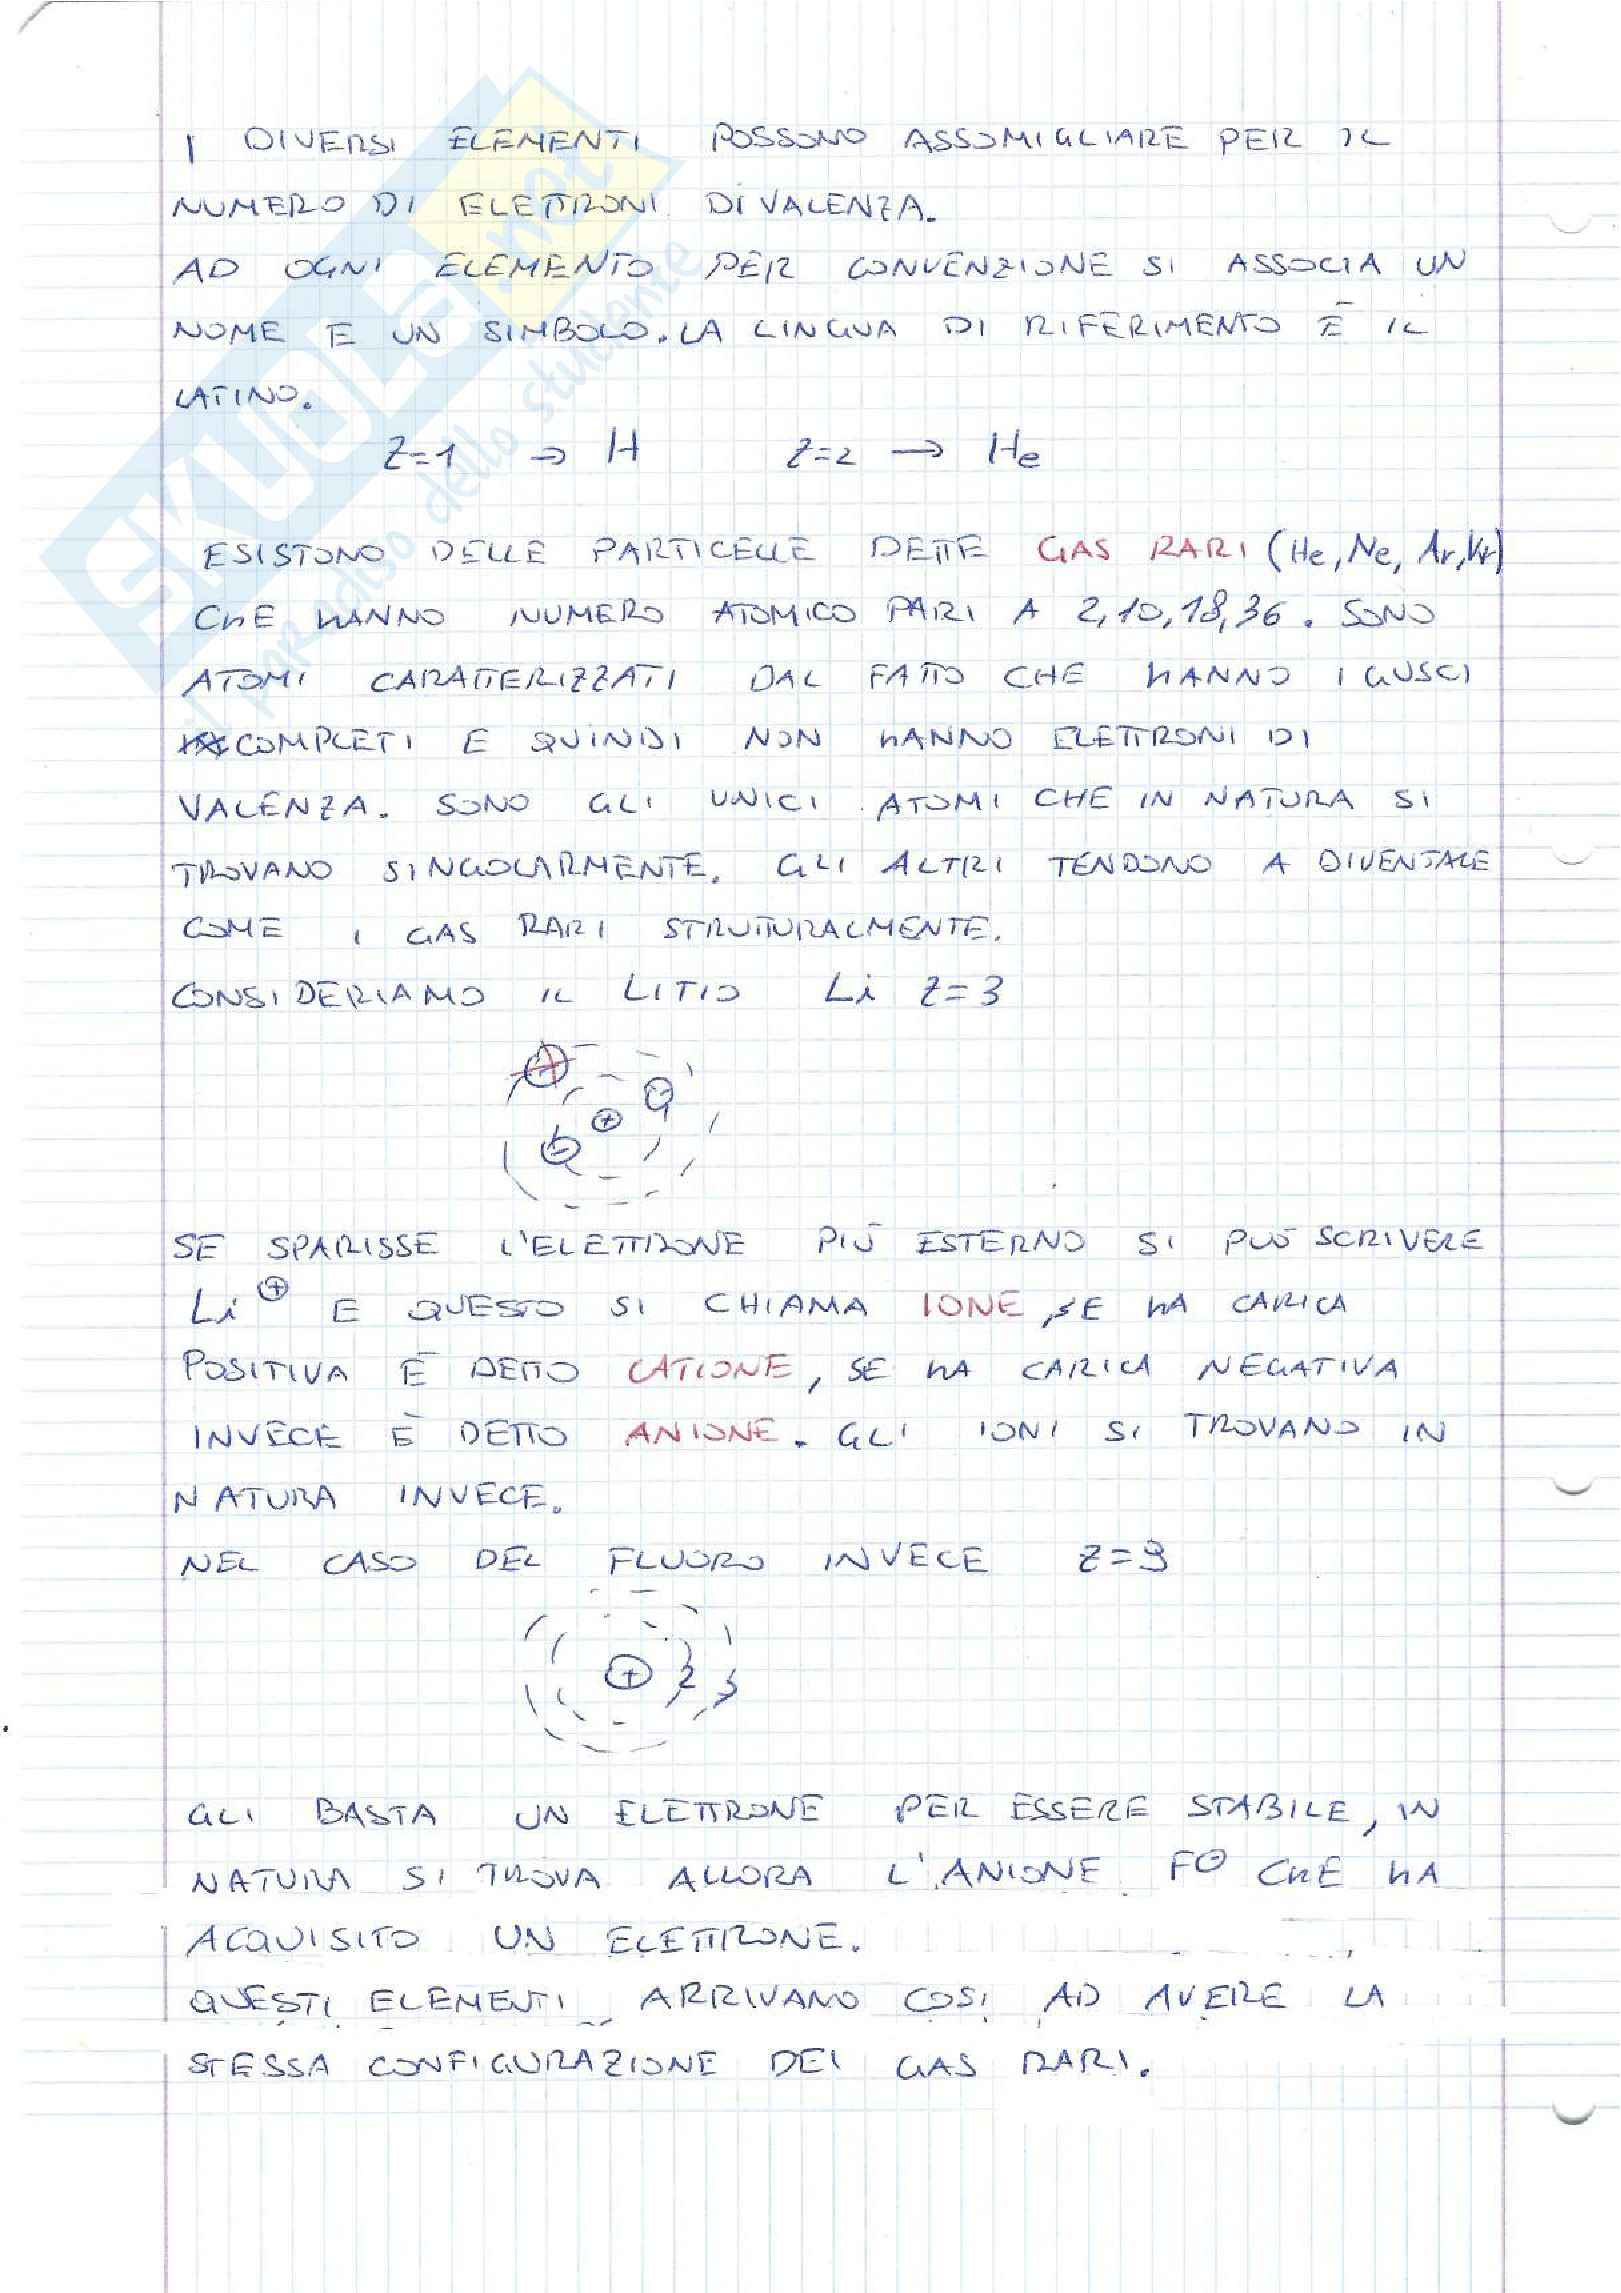 I DIVERSI ELEMENTI POSSONO ASSOMIGLIARE PER IL
NUMERO DI ELETTRONI DI VALENZA.
AD OGNI ELEMENTO PER CONVENZIONE SI ASSOCIA UN
NOME E UN SIMBOLO. LA LINGUA DI RIFERIMENTO È IL
LATINO.
Z=1 → H Z=2 → He
ESISTONO DELLE PARTICELLE DETTE GAS RARI (He, Ne, Ar, Kr)
CHE HANNO NUMERO ATOMICO PARI A 2, 10, 18, 36. SONO
ATOMI CARATTERIZZATI DAL FATTO CHE HANNO I GUSCI
COMPLETI E QUINDI NON HANNO ELETTRONI DI
VALENZA. SONO GLI UNICI ATOMI CHE IN NATURA SI
TROVANO SINGOLARMENTE. GLI ALTRI TENDONO A DIVENTARE
COME I GAS RARI STRUTTURALMENTE.
CONSIDERIAMO IL LITIO Li Z=3
+
SE SPARISSE L'ELETTRONE PIÙ ESTERNO SI PUÒ SCRIVERE
Li⊕ E QUESTO SI CHIAMA IONE, SE HA CARICA
POSITIVA È DETTO CATIONE, SE HA CARICA NEGATIVA
INVECE È DETTO ANIONE. GLI IONI SI TROVANO IN
NATURA INVECE.
NEL CASO DEL FLUORO INVECE Z=9
+ 2
GLI BASTA UN ELETTRONE PER ESSERE STABILE, IN
NATURA SI TROVA ALLORA L'ANIONE F⊖ CHE HA
ACQUISITO UN ELETTRONE.
QUESTI ELEMENTI ARRIVANO COSÌ AD AVERE LA
STESSA CONFIGURAZIONE DEI GAS RARI.
SKUOLA.net
il paradiso dello studente